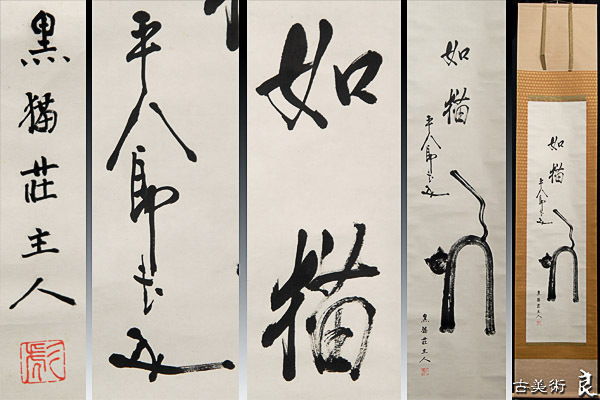 黒猫荘主人
平八郎
如猫
如猫
平八郎
黒猫荘主人
如猫
平八郎
黒猫荘主人
古美術 良